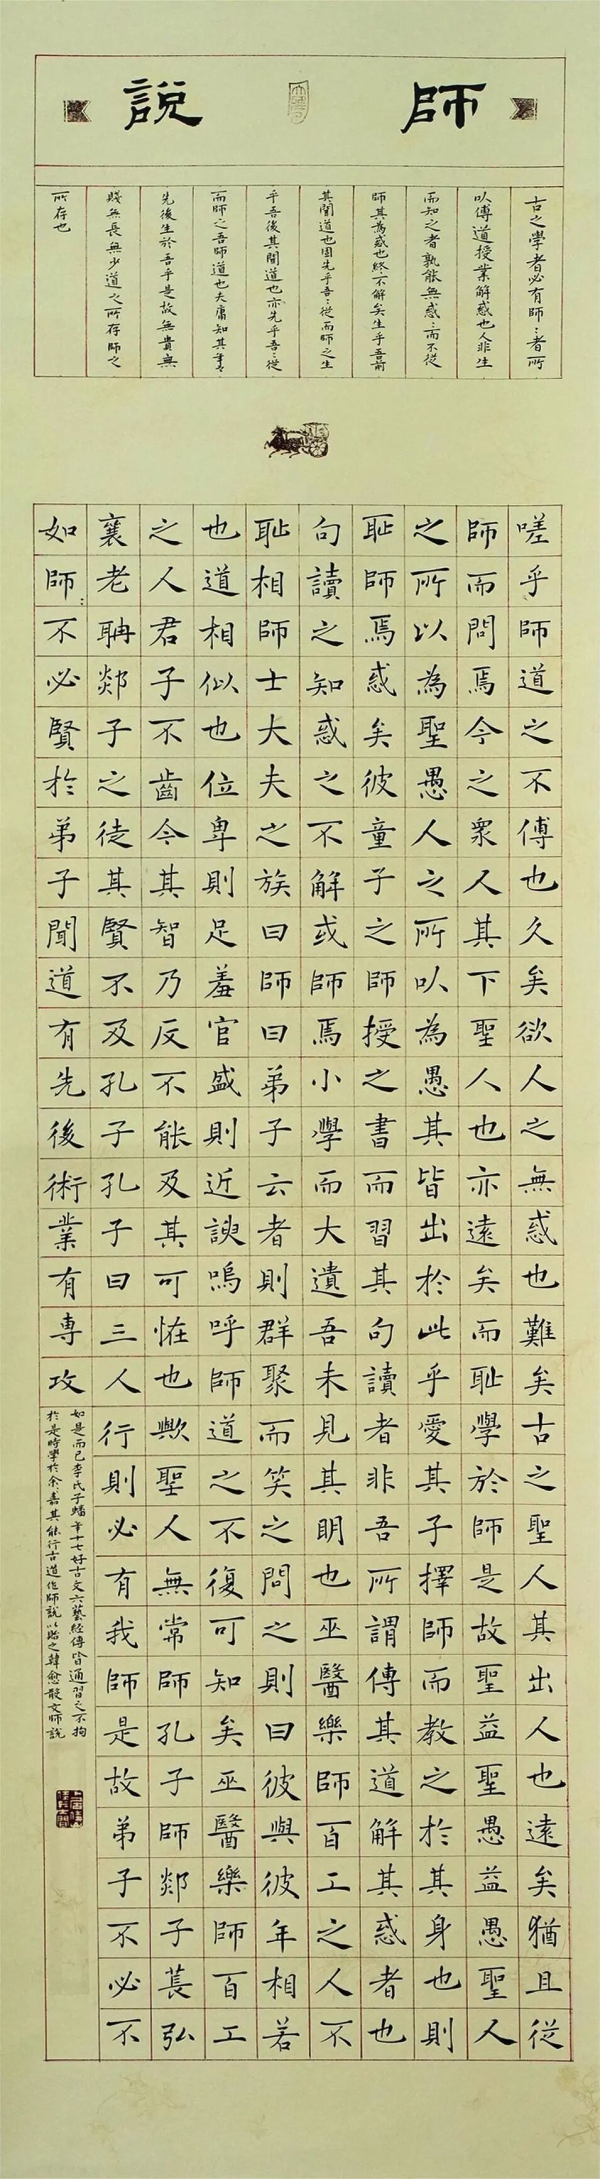 師說
古之學者必有師:者所
以傳道授業解惑也人非生
而知之者孰能無惑:而不從
師其為惑也終不解矣生乎吾前
其聞道也固先乎吾:從而師之生
乎吾後其聞道也亦先乎吾:從
而師之吾師道也夫庸知其年之
先後生於吾乎是故無貴無
賤無長無少道之所存師之
所存也
嗟乎師道之不傳也久矣欲人之無惑也難矣古之聖人其出人也遠矣猶且從
師而問焉今之衆人其下聖人也亦遠矣而恥學於師是故聖益聖愚益愚聖人
之所以為聖愚人之所以為愚其皆出於此乎愛其子擇師而教之於其身也則
恥師焉惑矣彼童子之師授之書而習其句讀者非吾所謂傳其道解其惑者也
句讀之知惑之不解或師焉小學而大遺吾未見其明也巫醫樂師百工之人不
恥相師士大夫之族曰師曰弟子云者則群聚而笑之問之則曰彼與彼年相若
也道相似也位卑則足羞官盛則近諛嗚呼師道之不復可知矣巫醫樂師百工
之人君子不齒今其智乃反不能及其可恠也歟聖人無常師孔子師郯子萇弘
襄老聃郯子之徒其賢不及孔子孔子曰三人行則必有我師是故弟子不必不
如師不必賢於弟子聞道有先後術業有專攻
如是而已李氏子蟠年十七好古文六藝經傳皆通習之不拘
於是時學於余:嘉其能行古道作師說以貽之韓愈散文師說